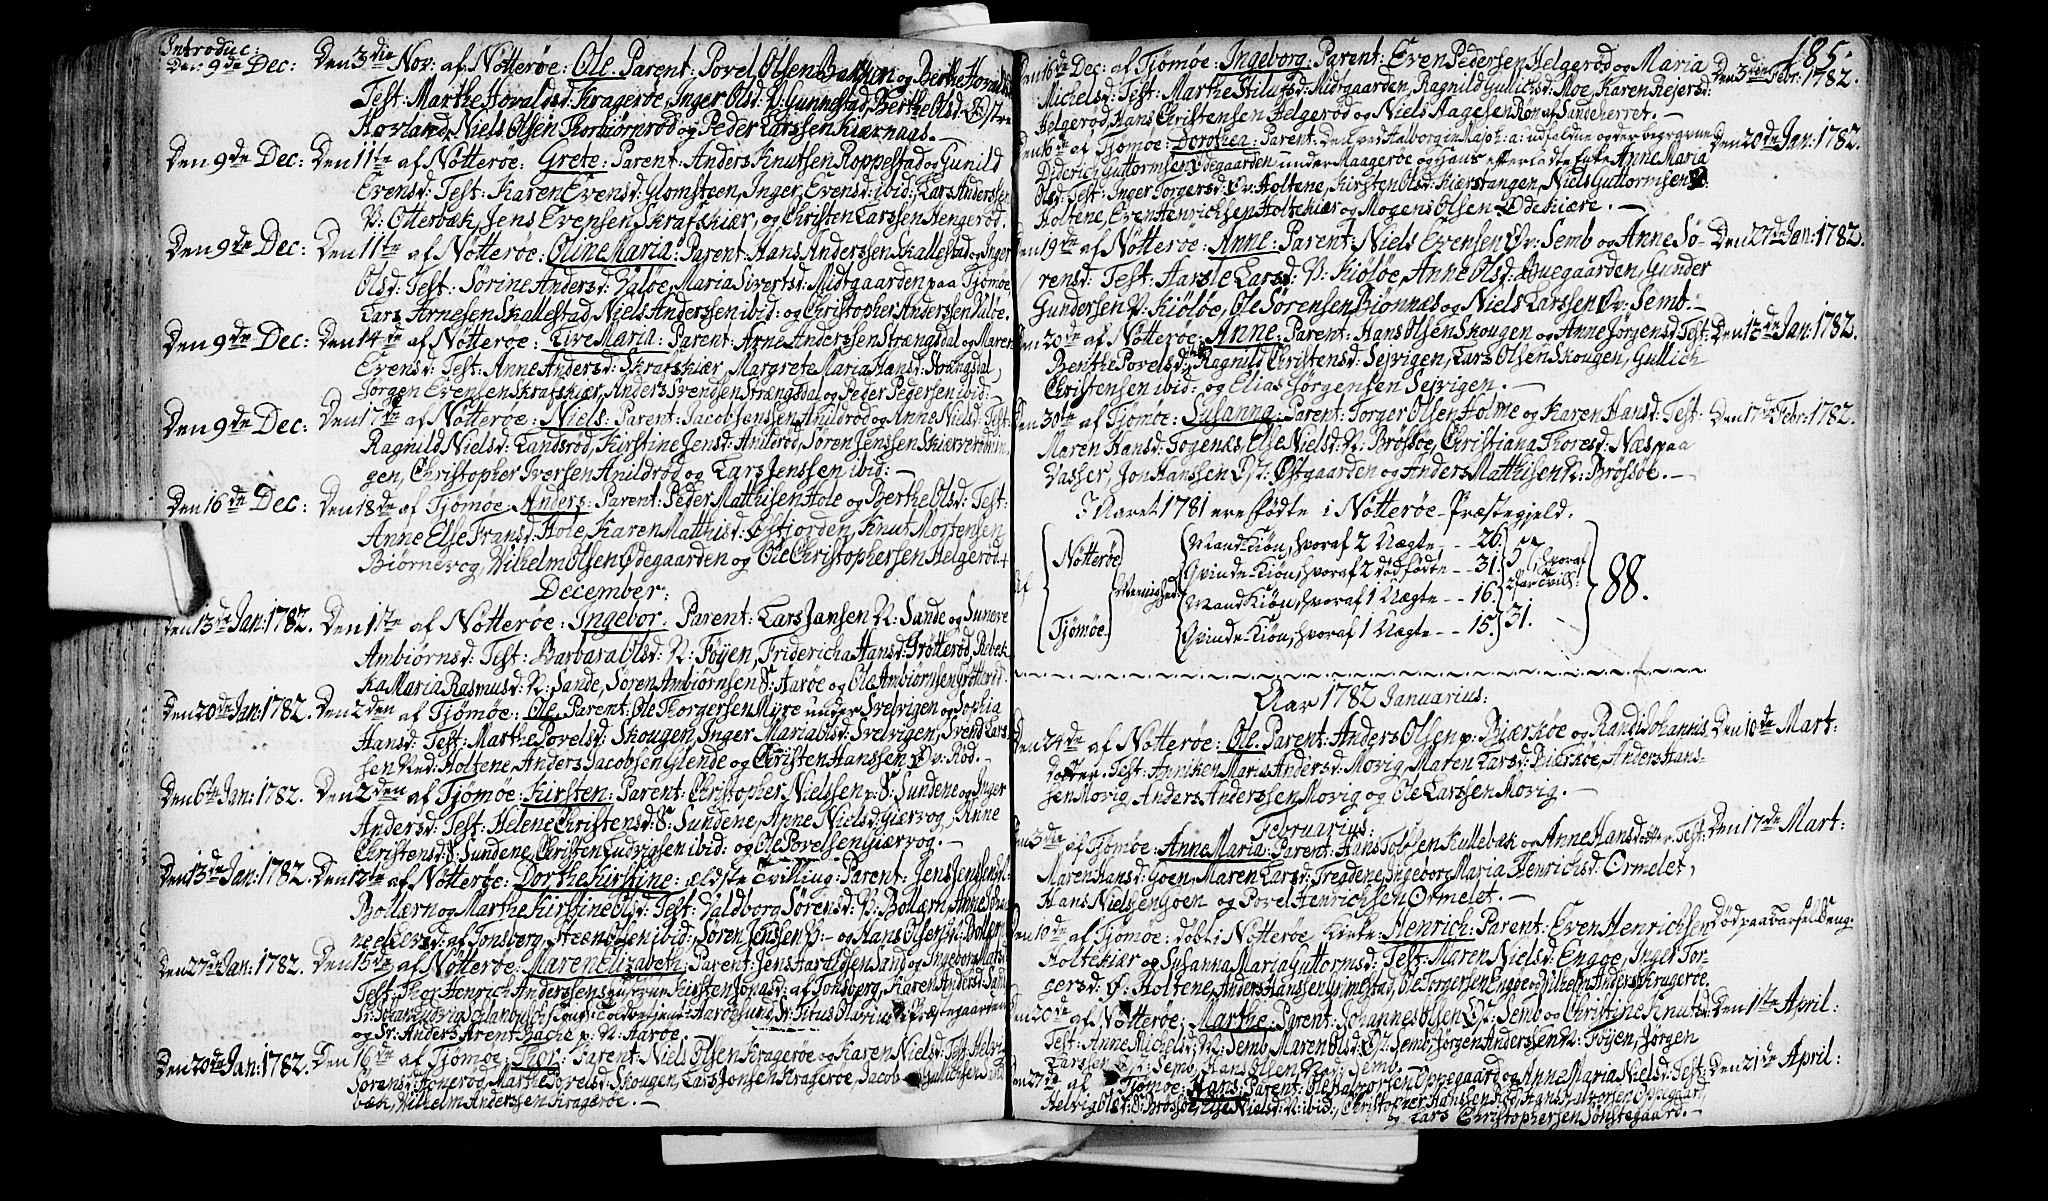 Introduc:
Den 9de Dec: Den 3die Nov: af Nötterøe: Ole. Parent: Povel Olsen Bakken og Berthe Hovalds
Test: Marthe Hovaldsd: Kragerøe, Inger Olsd: V: Gunnestad, Berthe Olsd: Østre
Hovland, Niels Olsen Thorbiørnrød og Peder Larssen Kiærnaas. —
Den 9de Dec: Den 11te af Nötterøe: Grete: Parent: Anders Knutsen Roppestad og Gunild
Evensd: Test: Karen Evensd: Glomsteen, Inger Evensd: ibid: Lars Anderssen
V: Otterbæk, Jens Evensen Skrafskiær, og Christen Larssen Hengerød.
Den 9de Dec: Den 11te af Nötterøe: Oline Maria: Parent: Hans Anderssen Skallestad og Inger
Olsd: Test: Sørine Andersd: Valøe, Maria Sivertsd: Midtgaarden paa Tjömöe,
Lars Arnesen Skallestad Niels Anderssen ibid: og Christopher Anderssen Valøe.
Den 9de Dec: Den 14de af Nötterøe: Live Maria: Parent: Arne Anderssen Strængsdal og Maren
Evensd: Test: Anne Andersd: Skrafskiær, Margrete Maria Hansd: Strængsdal,
Jørgen Evensen Skrafskiær, Anders Svendsen Strængsdal og Peder Pedersen ibid: —
Den 9de Dec: Den 17de af Nötterøe: Niels: Parent: Jacob Jenssen Anildrød og Anne Nielsd: Test:
Ragnild Nielsd: Landsrød, Kirstine Jensd: Anildrød, Søren Jenssen Skierve
gen, Christopher Iversen Anildrød og Lars Jenssen ibid: —
Den 16de Dec: Den 18de af Tjömöe Anders: Parent: Peder Mathisen Hole og Berthe Olsd: Test:
Anne Else Fransd: Hole Karen Matthisd: Østjorden, Knut Mortensen
Biørnevog, Vilhelm Olsen Ødegaarden og Ole Christophersen Helgerød. +
December:
Den 13de Jan: 1782. Den 1ste af Nötterøe: Ingebor. Parent: Lars Jansen N: Sande og
Ambiørnsd: Test: Barbara Olsd: N: Föyen, Fridericha Hansd: Grötterød, Rebek
ka Maria Rasmusd: N: Sande, Søren Ambiørnsen S: Aarøe og Ole Ambiørnsen Grötterød
Den 20de Jan: 1782. Den 2den af Tjömöe: Ole. Parent: Ole Thorgersen Myre under Svelvigen og Sophia
Hansd: Test: Marthe Povelsd: Skougen, Inger Maria Olsd: Svelvigen, Svend Lars
sen Ned: Holtene, Anders Jacobsen Glende og Christen Hanssen Øv: Rød. —
Den 6te Jan: 1782. Den 2den af Tjömöe: Kirsten: Parent: Christopher Nielssen S: Sundene og Inger
Andersd: Test: Helene Christensd: S: Sundene, Anne Nielsd: Giærvog, Anne
Christensd: S: Sundene, Christen Ludvigsen ibid: og Ole Povelsen Giærvog. —
Den 13de Jan: 1782. Den 12te af Nötterøe: Dorthe Kirstine: ældste Tvilling: Parent: Jens Jensen N:
Bollærn og Marthe Kirstine Olsd: Test: Valdborg Sørensd: N: Bollærn, Anne Johan
ne Eilersd: af Tønsberg, Steen Olsen ibid: Søren Jenssen og Hans Olsen N: Bollær
Den 27de Jan: 1782. Den 15de af Nötterøe: Maren Elizabeth: Parent: Jens Haraldsen Sand og Ingebor Matsd:
Test: Thor Henrich Anderssens Kirsten Jonasd: af Tønsberg, Karen Andersd: Sand
Sr: Johan Aarøesund, Sr: Titus Præstegaarden
og Sr: Anders Arent Bache p: N: Aarøe.
Den 20de Jan: 1782. Den 16de af Tjömöe: Thor: Parent: Niels Olsen Kragerøe og Karen Nielsd: Test:
Sørensd: Honerød, Marthe Povelsd: Skougen, Lars Jonsen Kragerøe, Jacob Gullichsen
bæk, Vilhelm Anderssen Kragerøe. —
185.
Den 16de Dec: af Tjömöe: Ingeborg: Parent: Even Pedersen Helgerød og Maria Den 3die Febr: 1782.
Michelsd: Test: Marthe Midtgaarden, Ragnild Gullichsd: Moe, Karen Reiersd:
Helgerød, Hans Christensen Helgerød og Niels Aagesen Røn af Sandeherret. —
Den 16de af Tjömöe: Dorothea: Parent: Den ved Aalborg in Majo h: a: udfaldne og der begravne Den 20de Jan: 1782.
Diderich Guttormsen Ødegaarden under Maagerøe og hans efterladte Enke Anne Maria
Olsd: Test: Inger Torgersd: Øv: Holtene, Kirsten Olsd: Kiærstangen, Niels Guttormsen
Holtene, Even Henrichsen Holtekiær og Mogens Olsen Ødekiære. —
Den 19de af Nötterøe: Anne: Parent: Niels Evensen Øv: Semb og Anne Sø- Den 27de Jan: 1782.
rensd: Test: Larsd: V: Kiøløe, Anne Olsd: Buegaarden, Gunder
Gundersen V: Kiøløe, Ole Sørensen Biønnæs og Niels Larssen Øv: Semb. —
Den 20de af Nötterøe: Anne: Parent: Hans Olsen Skougen og Anne Jørgensd: Test: Den 13de Jan: 1782.
Benthe Povelsd: Ragnild Christensd: Sejrigen, Lars Olsen Skougen, Gullich
Christensen ibid: og Elias Jørgensen Sejrigen. —
Den 30te af Tjömöe: Susanna: Parent: Torger Olsen Holme og Karen Hansd: Test: Den 17de Febr: 1782.
Maren Hansd: Togenes, Else Nielsd: N: Brøsøe, Christiana Thoresd: Næs paa
Vasser, Jon Hanssen Øv: Østgaarden og Anders Matthisen N: Brøsøe. —
Naret 1781 ere fødte i Nötterøe Præstegjeld.
Af Nötterøe Tjömöe Menighed
Mand-Kiøn, hvoraf 2 Uægte, - - 26.
Qvinde-Kiøn, hvoraf 2 dødfødte - - 31. 57, hvoraf 2 Par Tvill:
Mand Kiøn, hvoraf 1 Uægte - - 16.
Qvinde-Kiøn, hvoraf 1 Uægte - - 15. 31.
88.
Aar 1782 Januarius:
Den 24de af Nötterøe: Ole. Parent: Anders Olsen p: Biærkøe og Randi Johannis Den 10de Mart:
dotter. Test: Anniken Maria Andersd: Movig, Maren Larsd: Biærkøe, Anders Hans-
sen Movig, Anders Anderssen Movig og Ole Larssen Movig. —
Februarius:
Den 3die af Tjömöe: Anne Maria: Parent: Hans Tolofsen Kullebæk og Anne Hansdotter Test: Den 17de Mart:
Maren Hansd: Goen, Maren Larsd: Tregdene, Ingeborg Maria Henrichsd: Ormelet,
Hans Nielsen Goen og Povel Henrichsen Ormelet. —
Den 10de af Tjömöe: døbt i Nötterøe Kirke: Henrich: Parent: Even Henrichsen Død paa Barselseng.
Holtekiær og Susanna Maria Guttormsd: Test: Maren Nielsd: Engøe, Inger Tor-
gersd: Ø: Holtene, Anders Hanssen Grimestad, Ole Torgersen Engøe og Vilhelm Anderss: Kragerøe.
Den 20de af Nötterøe: Marthe: Parent: Johannes Olsen Øv: Semb og Christine Knutsd: Den 1ste April:
Test: Anne Michelsd: N: Semb, Maren Olsd: Øv: Semb, Jørgen Anderssen N: Föyen, Jørgen
Larssen Øv: Semb, Hans Olsen Ned: Semb.
Den 27de af Tjömöe: Hans: Parent: Ole Halvorsen Oppegaard og Anne Maria Nielsd: Test: Den 21de April:
Helvig Olsd: S: Brøsøe, Else Nielsd: N: ibid:, Christopher Hanssen Rød, Hans Halvorsen Oppegaard,
og Lars Christophersen Sønstegaard. —